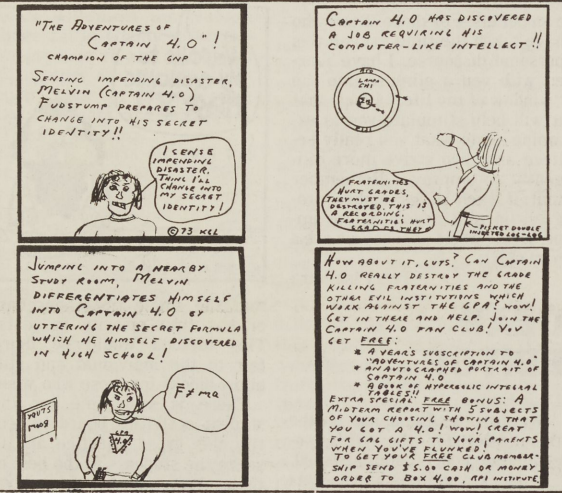 "THE ADVENTURES OF
CAPTAIN 4.0"!
CHAMPION OF THE GNP
SENSING IMPENDING DISASTER,
MELVIN (CAPTAIN 4.0)
FUDSTUMP PREPARES TO
CHANGE INTO HIS SECRET
IDENTITY!!
I SENSE
IMPENDING
DISASTER.
THING I'LL
CHANGE INTO
MY SECRET
IDENTITY!
©73 KGL
CAPTAIN 4.0 HAS DISCOVERED
A JOB REQUIRING HIS
COMPUTER-LIKE INTELLECT!!
RIP
LAMDA
CHI
FRATERNITIES
HURT GRADES,
THEY MUST BE
DESTROYED. THIS IS
A RECORDING.
FRATERNITIES HURT
GRADES THEY
PICKET DOUBLE
INVERTED LOG-LOG
JUMPING INTO A NEARBY
STUDY ROOM, MELVIN
DIFFERENTIATES HIMSELF
INTO CAPTAIN 4.0 BY
UTTERING THE SECRET FORMULA
WHICH HE HIMSELF DISCOVERED
IN HIGH SCHOOL!
F̄ ≠ ma
STUDY
ROOM
GPA
4.0
HOW ABOUT IT, GUTS? CAN CAPTAIN
4.0 REALLY DESTROY THE GRADE
KILLING FRATERNITIES AND THE
OTHER EVIL INSTITUTIONS WHICH
WORK AGAINST THE GPA? WOW!
GET IN THERE AND HELP. JOIN THE
CAPTAIN 4.0 FAN CLUB! YOU
GET FREE:
* A YEAR'S SUBSCRIPTION TO
"ADVENTURES OF CAPTAIN 4.0"
* AN AUTOGRAPHED PORTRAIT OF
CAPTAIN 4.0
* A BOOK OF HYPERBOLIC INTEGRAL
TABLES!!
EXTRA SPECIAL FREE BONUS: A
MIDTERM REPORT WITH 5 SUBJECTS
OF YOUR CHOOSING SHONING THAT
YOU GOT A 4.0! WOW! GREAT
FOR GAG GIFTS TO YOUR PARENTS
WHEN YOU'VE FLUNKED!
TO GET YOUR FREE CLUB MEMBER-
SHIP SEND $5.00 CASH OR MONEY
ORDER TO BOX 4.00, RPI INSTITUTE,